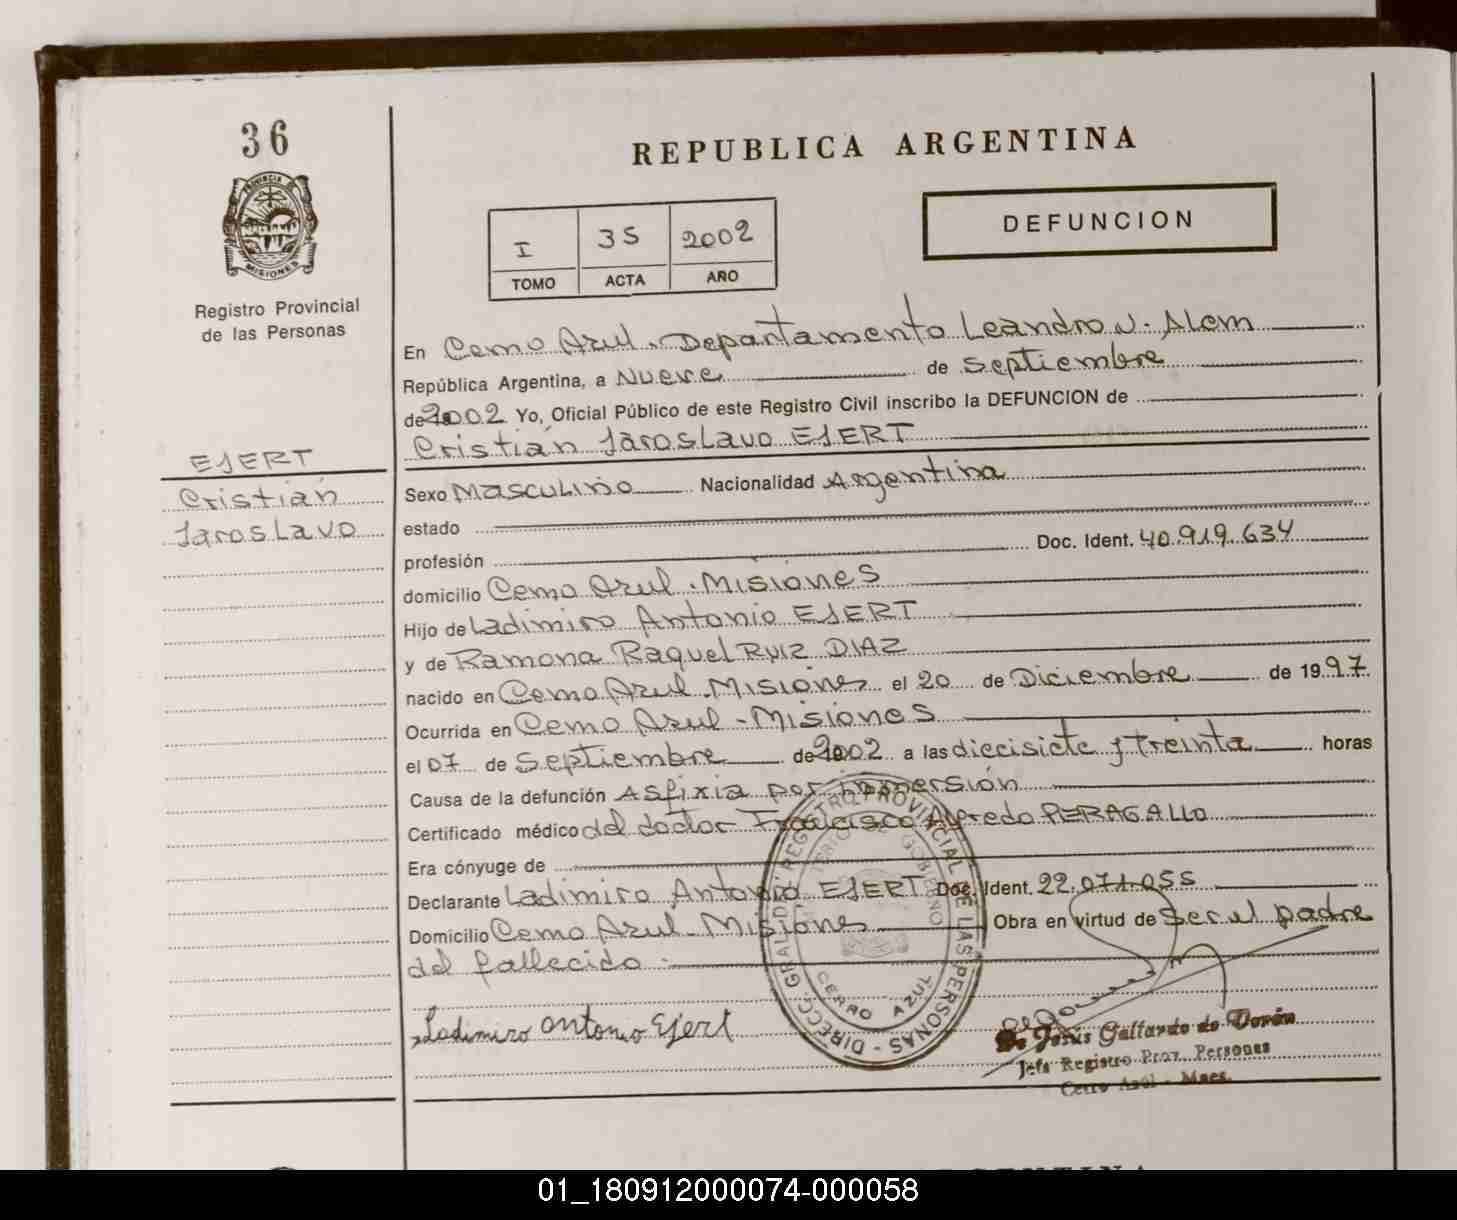 36
REPUBLICA ARGENTINA
DEFUNCION
I 35 2002
TOMO ACTA AÑO
PROVINCIA DE
MISIONES
Registro Provincial
de las Personas
En Cerro Azul. Departamento Leandro N. Alem
República Argentina, a Nueve de Septiembre
de 2002 Yo, Oficial Público de este Registro Civil inscribo la DEFUNCION de
Cristián Jaroslavo EJERT
EJERT
Cristián
Jaroslavo
Sexo Masculino Nacionalidad Argentina
estado
profesión Doc. Ident. 40.919.634
domicilio Cerro Azul. Misiones
Hijo de Ladimiro Antonio EJERT
y de Ramona Raquel RUIZ DIAZ
nacido en Cerro Azul. Misiones el 20 de Diciembre de 1997
Ocurrida en Cerro Azul - Misiones
el 07 de Septiembre de 2002 a las diecisiete y treinta horas
Causa de la defunción Asfixia por inmersión
Certificado médico del doctor Francisco Alfredo PERAGALLO
Era cónyuge de
Declarante Ladimiro Antonio EJERT Doc. Ident. 22.071.055
Domicilio Cerro Azul - Misiones Obra en virtud de ser el padre
del fallecido.
Ladimiro Antonio Ejert
DIRECC. GRAL. DE REGISTRO PROVINCIAL DE LAS PERSONAS
GOBIERNO
CERRO AZUL
De Jesús Gallardo de Durán
Jefa Registro Prov. Personas
Cerro Azul - Mnes.
01_180912000074-000058